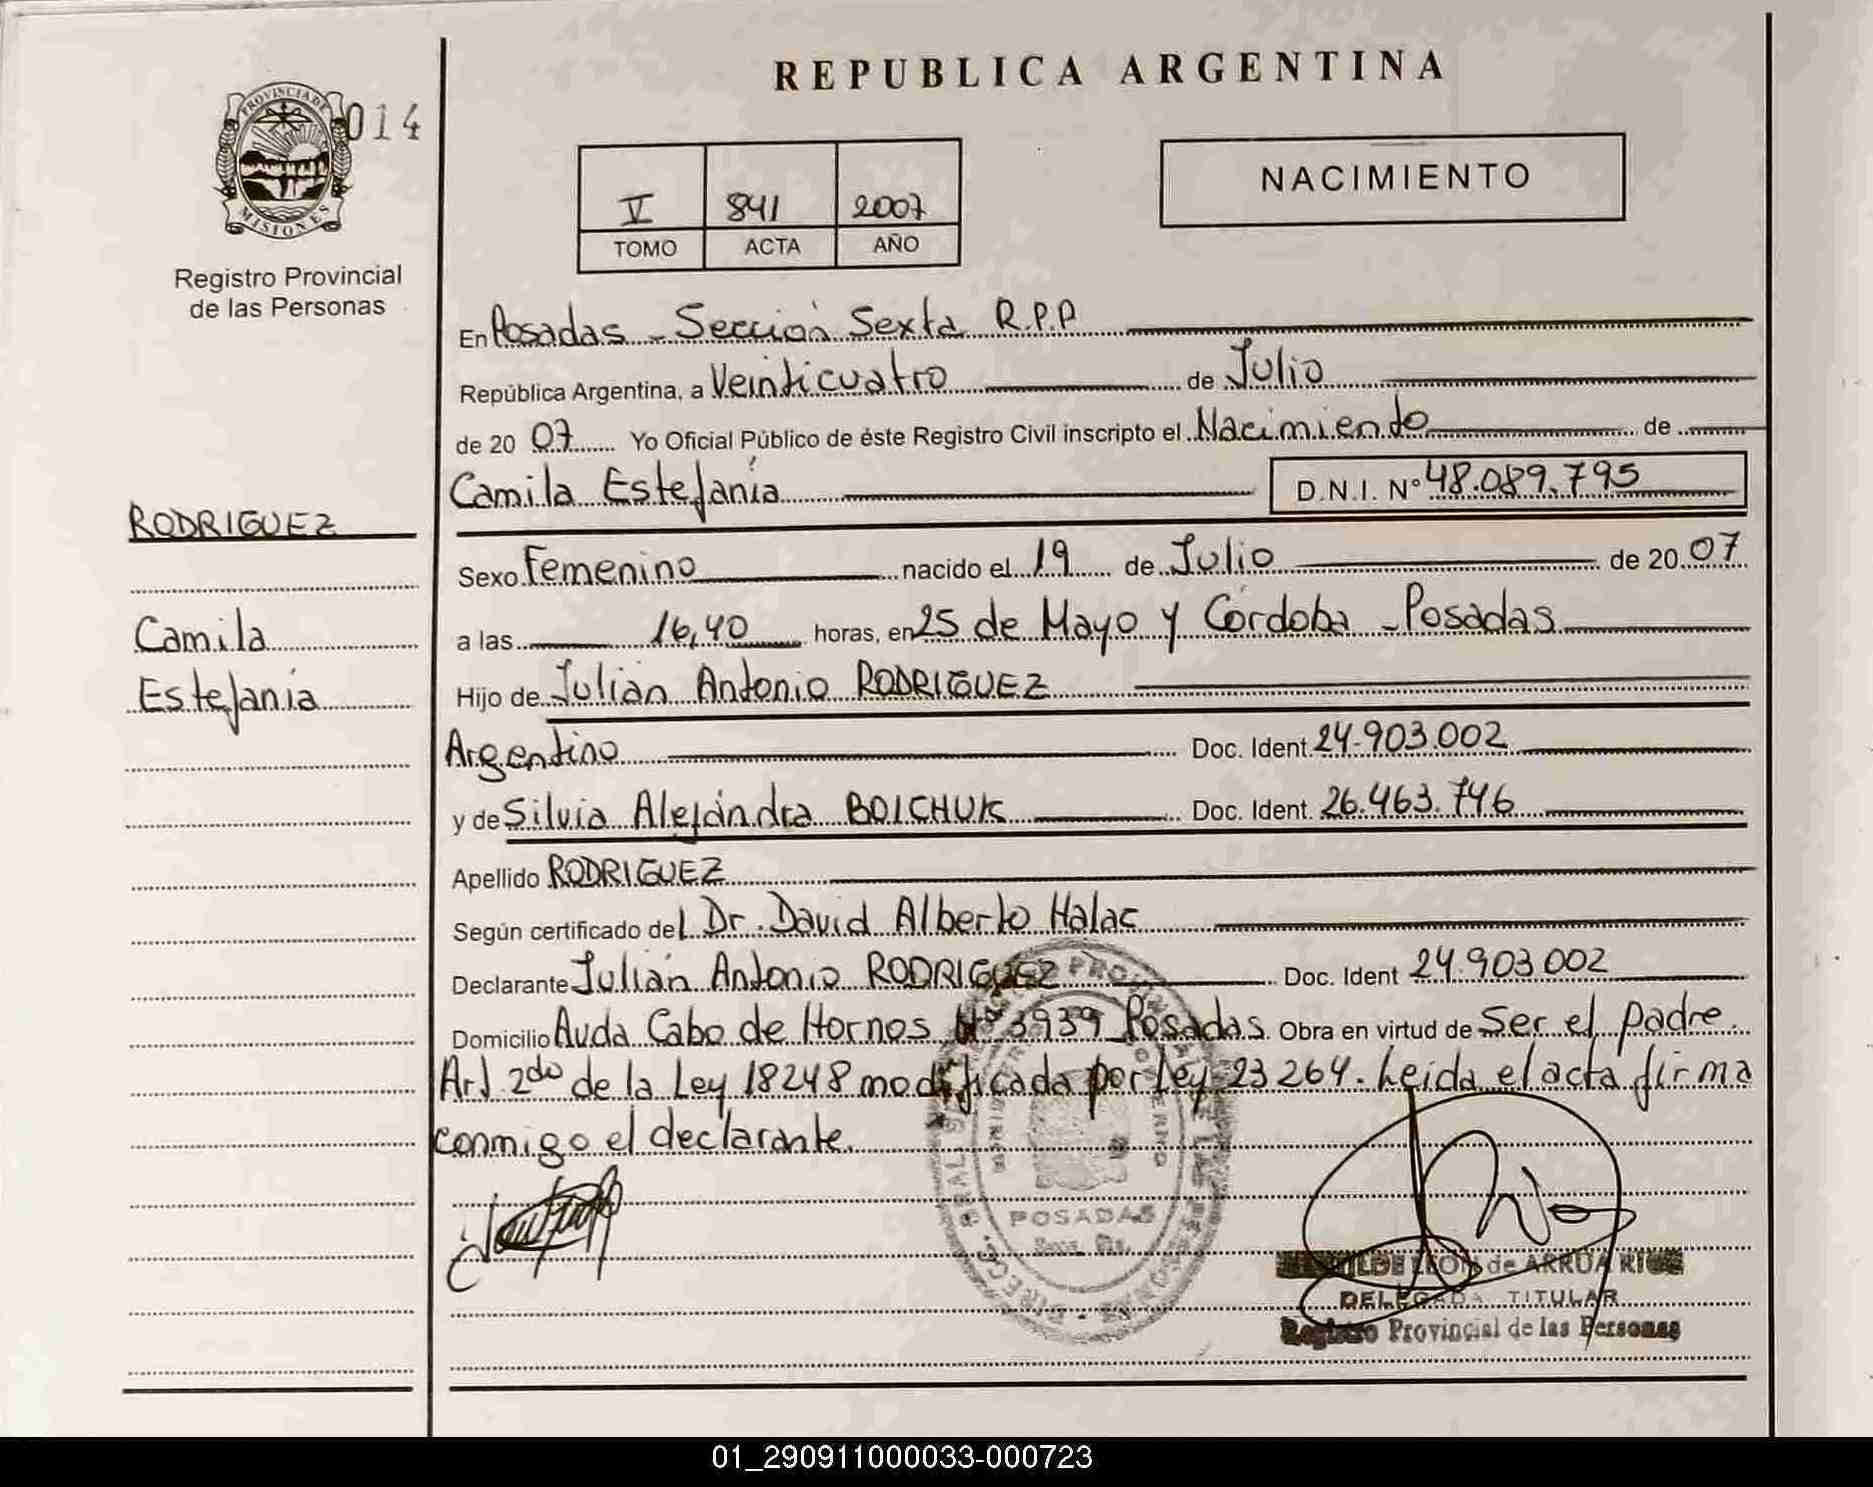 REPUBLICA ARGENTINA
PROVINCIA DE
MISIONES
014
Registro Provincial
de las Personas
V 841 2007
TOMO ACTA AÑO
NACIMIENTO
RODRIGUEZ
Camila
Estefanía
En Posadas - Sección Sexta R.P.P
República Argentina, a Veinticuatro de Julio
de 20 07 Yo Oficial Público de éste Registro Civil inscripto el Nacimiento de
Camila Estefanía D.N.I. N° 48.089.795
Sexo Femenino nacido el 19 de Julio de 20 07
a las 16,40 horas, en 25 de Mayo y Córdoba - Posadas
Hijo de Julián Antonio RODRIGUEZ
Argentino Doc. Ident. 24.903.002
y de Silvia Alejandra BOICHUK Doc. Ident. 26.463.746
Apellido RODRIGUEZ
Según certificado del Dr. David Alberto Halac
Declarante Julián Antonio RODRIGUEZ Doc. Ident 24.903.002
Domicilio Avda Cabo de Hornos N° 3939 Posadas. Obra en virtud de Ser el padre
Art 2do de la Ley 18248 modificada por Ley 23264. Leída el acta firma
conmigo el declarante.
POSADAS
LEON de ARRUA RIOS
DELEGADA TITULAR
Registro Provincial de las Personas
01_290911000033-000723